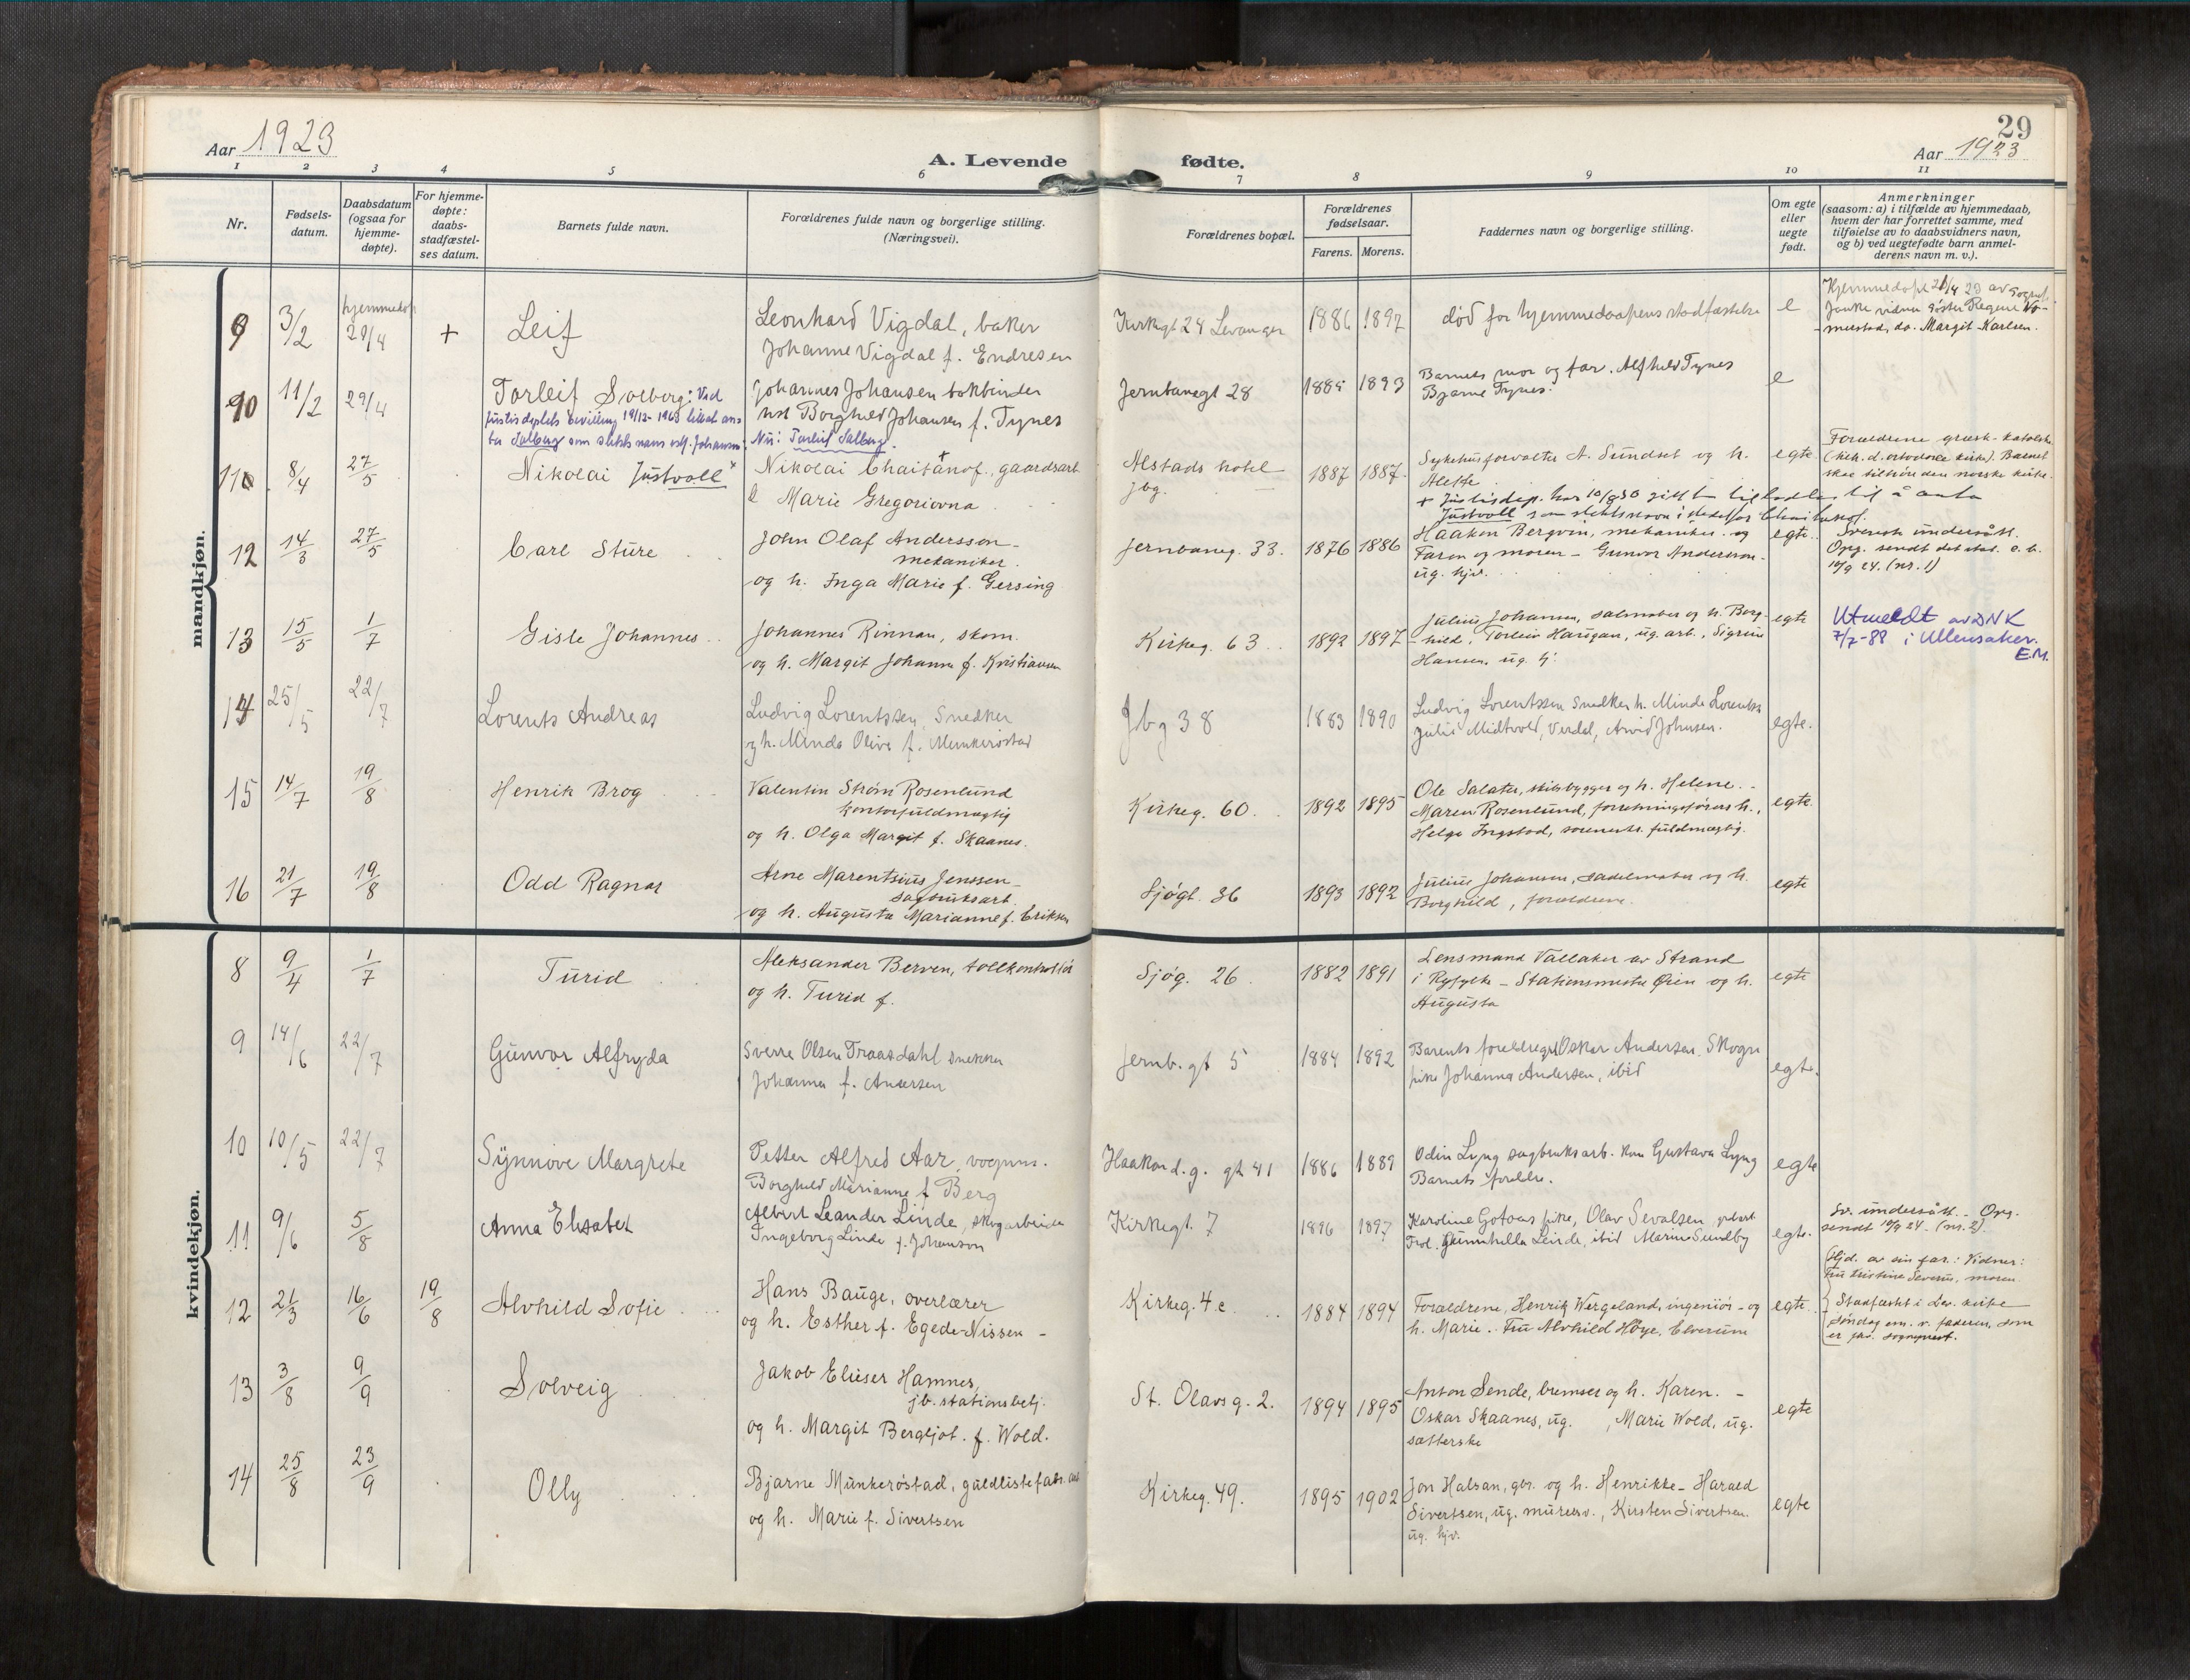 29
Aar 1923
A. Levende fødte.
Aar 1923
1 2 3 4 5 6 7 8 9 10 11
Nr.
Fødsels-
datum.
Daabsdatum
(ogsaa for
hjemme-
døpte).
For hjemme-
døpte:
daabs-
stadfæstel-
ses datum.
Barnets fulde navn.
Forældrenes fulde navn og borgerlige stilling.
(Næringsvei).
Forældrenes bopæl.
Forældrenes
fødselsaar.
Farens. Morens.
Faddernes navn og borgerlige stilling.
Om egte
eller
uegte
født.
Anmerkninger
(saasom: a) i tilfælde av hjemmedaab,
hvem der har forrettet samme, med
tilføielse av to daabsvidners navn,
og b) ved uegtefødte barn anmel-
derens navn m. v.).
mandkjøn.
9 3/2 hjemmedøp 29/4 + Leif
Leonhard Vigdal, baker
Johanne Vigdal f. Endresen
Kirkegt 24 Levanger 1886 1897
død før hjemmedaapens stadfæstelse
e
Hjemmedøpt
Margit Karlsen.
10 11/2 29/4 Torleif Solberg: Ved
19/12-1963
ta Salberg som slektsnavn istf. Johansen.
Johannes Johansen bokbinder
Borghild Johansen f. Tynes
Nu: Torleif Salberg.
Jernbanegt 28 1885 1893
Barnets mor og far. Alfhild Tynes
Bjarne Tynes.
e
11 8/4 27/5 Nikolai Justvoll x
Nikolai Chaitanof, gaardsarb.
Marie Gregoriovna
Alstads hotel
jbg.
1887 1887
Sykehusforvalter A. Sundset og h.
Alette
egte
Forældrene græsk-katolske
(tilh. d. ortodokse kirke). Barnet
skal tilhøre den norske kirke.
+ Justisdep. har 10/9 30 gitt tillatelse til å anta
Justvoll som slektsnavn i stedet for Chaitanof.
12 14/3 27/5 Carl Sture
John Olaf Andersson
mekaniker.
og h. Inga Marie f. Gersing
Jernbaneg. 33. 1876 1886
Haakon Bergvin, mekaniker og
Faren og moren - Gunvor Andersson
ug. hjv.
egte
Svensk undersått.
Opg. sendt
10/9 24. (nr. 1)
13 15/5 1/7 Gisle Johannes
Johannes Rinnan, skom.
og h. Margit Johanne f. Kristiansen
Kirkeg. 63 1892 1897
Julius Johansen, salmaker og h. Borg-
hild, Torleiv Harigan, ug. arb., Sigrun
Hansen ug. hj.
egte
Utmeldt av DNK
7/7-88 i Ullensaker.
E.M.
14 25/5 22/7 Lorents Andreas
Ludvig Lorentssen Snedker
og h. Minda Oliva f. Munkerøstad
Jbg 38 1883 1890
Ludvig Lorentssen Snedker h. Minda Lorents
Julie Midtvold, Verdal, Arvid Johnsen.
egte.
15 14/7 19/8 Henrik Brog
Valentin Strøm Rosenlund
kontorfuldmægtig
og h. Olga Margit f. Skaanes.
Kirkeg. 60. 1892 1895
Ole Salater, skibsbygger og h. Helene.
Maren Rosenlund, forretningsførers h.,
Helge Ingstad, sorenskr. fuldmægtig.
egte
16 21/7 19/8 Odd Ragnar
Arne Marentsius Jenssen
sagbruksarb.
og h. Augusta Marianne f. Eriksen
Sjøgt. 36 1893 1892
Julius Johansen, sadelmaker og h.
Borghild, forældrene.
egte
kvindekjøn.
8 9/4 1/7 Turid
Aleksander Berven, tollkontrollør
og h. Turid f.
Sjøg. 26 1882 1891
Lensmand Vallaker av Strand
i Ryfylke - Stationsmester Øien og h.
Augusta
egte
9 14/6 22/7 Gunvor Alfryda
Sverre Olsen Traasdahl snekker
Johanna f. Andersen
Jernb. gt 5 1884 1892
Barents foreldre, Oskar Andersen Skogn
pike Johanna Andersen, ibid
egte.
10 10/5 22/7 Synnove Margrete
Petter Alfred Aar, vognm.
Borghild Marianne f Berg
Haakon d. g. gt 41 1886 1889
Odin Lyng sagbruksarb. kone Gustava Lyng
Barnets foreldre.
egte
11 9/6 5/8 Anna Elisabet
Albert Leander Linde, skogarbeider
Ingeborg Linde f. Johanson
Kirkegt. 7 1896 1897
Karoline Gotaas pike, Olav Sevalsen
Frøl. Gunnhilla Linde, ibid Marius Sundby
egte.
Sv. undersått. - Opg.
sendt 10/9 24. (nr. 2).
12 21/3 16/6 19/8 Alvhild Sofie
Hans Bauge, overlærer
og h. Esther f. Egede-Nissen -
Kirkeg. 4 c 1884 1894
Forældrene, Henrik Wergeland, ingeniør - og
h. Marie. Fru Alvhild Høye, Elverum
egte
Hjd. av sin far.: Vidner:
Fru Kristine Severus, moren
Stadfæstet i Lev. kirke
søndag em. v. faderen, som
er sogneprest.
13 3/8 9/9 Solveig
Jakob Elieser Hamnes,
jb. stationsbetj.
og h. Margit Bergljot. f. Wold.
St. Olavs g. 2. 1894 1895
Anton Sende, bremser og h. Karen. -
Oskar Skaanes, ug. , Marie Wold, ug.
sætterske
egte
14 25/8 23/9 Olly
Bjarne Munkerøstad, guldlistefabr. arb
og h. Marie f. Sivertsen
Kirkeg. 49. 1895 1902
Jon Halsan, gbr. og h. Henrikke - Harald
Sivertsen, ug. murersv., Kirsten Sivertsen
ug. hjv.
egte